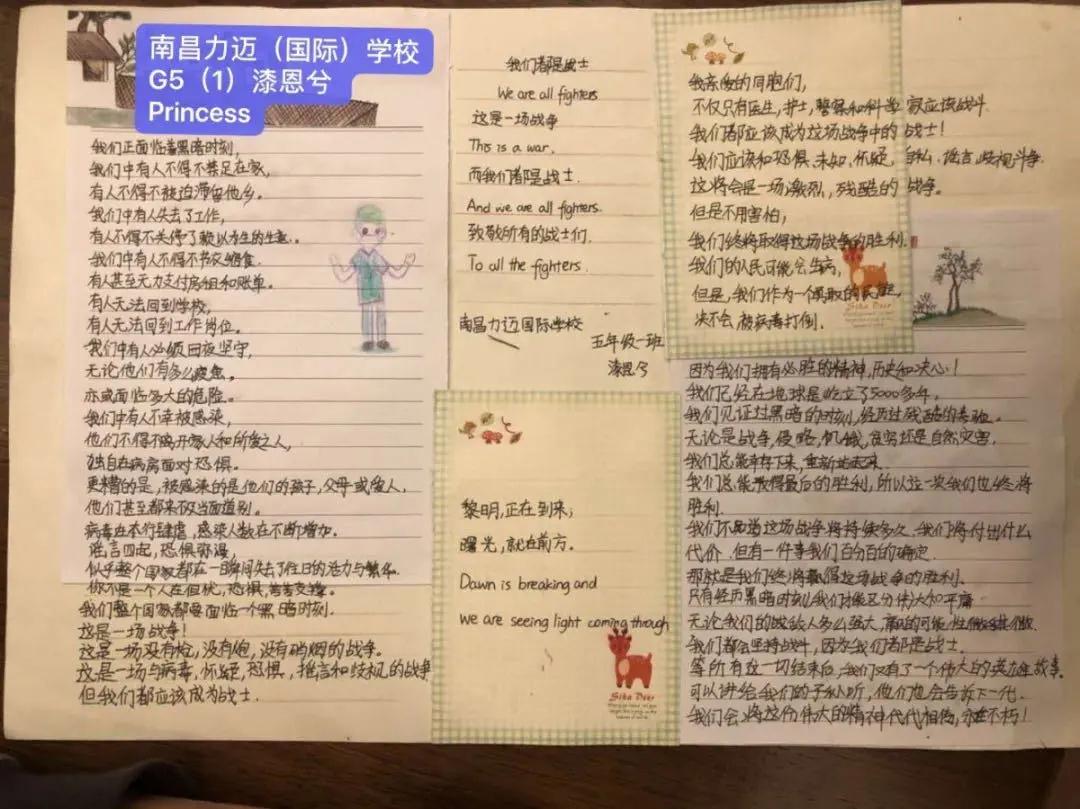 南昌力迈（国际）学校
G5（1）漆恩兮
Princess
我们正面临着黑暗时刻，
我们中有人不得不禁足在家，
有人不得不被迫滞留他乡。
我们中有人失去了工作，
有人不得不关停了赖以为生的生意。
我们中有人不得不节衣缩食.
有人甚至无力支付房租和账单。
有人无法回到学校，
有人无法回到工作岗位。
我们中有人必须日夜坚守，
无论他们有多么疲惫。
亦或面临多大的危险。
我们中有人不幸被感染，
他们不得不离开家人和所爱之人，
独自在病房面对恐惧。
更糟的是，被感染的是他们的孩子，父母或爱人，
他们甚至都来不及当面道别。
病毒在本行肆虐，感染人数在不断增加.
谣言四起，恐惧弥漫，
似乎整个国家都在一瞬间失去了往日的活力与繁华.
你不是一个人在担忧，恐惧，苦苦支撑。
我们整个国家都要面临一个黑暗时刻.
这是一场战争！
这是一场没有枪，没有炮，没有硝烟的战争。
这是一场与病毒，怀疑，恐惧，摇言和歧视的战争
但我们都应该成为战士.
我们都是战士
We are all fighters
这是一场战争
This is a war.
而我们都是战士.
And we are all fighters.
致敬所有的战士们.
To all the fighters.
南昌力迈国际学校
五年级一班
漆恩兮
黎明，正在到来；
曙光，就在前方。
Dawn is breaking and
we are seeing light coming through
Sika Deer
我亲爱的同胞们，
不仅只有医生，护士，警察和科学家应该战斗.
我们都应该成为这场战争中的战士！
我们应该和恐惧、未知、怀疑，自私、谣言，歧视斗争.
这将会是一场激烈，残酷的战争。
但是不用害怕，
我们终将取得这场战争的胜利.
我们的人民可能会生病，
但是，我们作为一个勇敢的民族，
决不会被病毒打倒.
Sika Deer
因为我们拥有必胜的精神，历史和决心！
我们已经在地球是屹立了5000多年，
我们见证过黑暗的时刻，经历过残酷的考验。
无论是战争，侵略，饥饿，贫穷还是自然灾害.
我们总能幸存下来，重新站起来.
我们总能取得最后的胜利，所以这一次我们也终将
胜利.
我们不知道这场战争将持续多久，我们将付出什么
代价.但有一件事我们百分百的确定.
那就是我们终将赢得这场战争的胜利.
只有经历黑暗时刻，我们才能区分伟大和平庸
无论我们的敌人多么强大，赢的可能性微乎其微.
我们都会坚持战斗，因为我们都是战士.
等所有这一切结束后，我们又有了一个伟大的英雄故事.
可以讲给我们的子孙听，他们也会告诉下一代.
我们会将这份伟大的精神代代相传，永垂不朽！